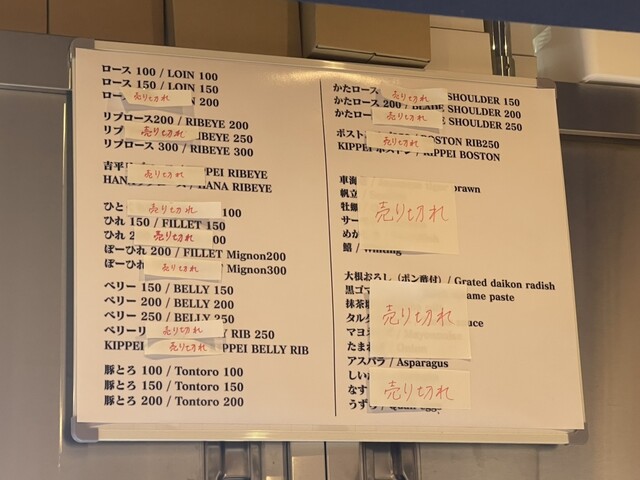 ロース 100 / LOIN 100
ロース 150 / LOIN 150
ロー 売り切れ N 200
リブロース200 / RIBEYE 200
リブ 売り切れ IBEYE 250
リブロース 300 / RIBEYE 300
吉平 売り切れ PPEI RIBEYE
HANA / HANA RIBEYE
ひ 売り切れ 100
ひれ 150 / FILLET 150
ひれ 2 売り切れ 00
ぽーひれ 200 / FILLET Mignon200
ぽーひれ 売り切れ Mignon300
ベリー 150 / BELLY 150
ベリー 200 / BELLY 200
ベリー 250 / BELLY 250
ベリーリ 売り切れ Y RIB 250
KIPPEI 売り切れ PPEI BELLY RIB
豚とろ 100 / Tontoro 100
豚とろ 150 / Tontoro 150
豚とろ 200 / Tontoro 200
かたロース 売り切れ SHOULDER 150
かたロース 200 / BLADE SHOULDER 200
かたロー 売り切れ SHOULDER 250
ボスト 売り切れ BOSTON RIB250
KIPPEI ボストン / KIPPEI BOSTON
車海 rawn
帆立
牡蠣 売り切れ
サー
めか
鱚 / Whiting
大根おろし（ポン酢付）/ Grated daikon radish
黒ゴマ ame paste
抹茶
タルタ 売り切れ uce
マヨネ
たまね
アスパラ / Asparagus
しい
なす 売り切れ
うずら / Quail eggs